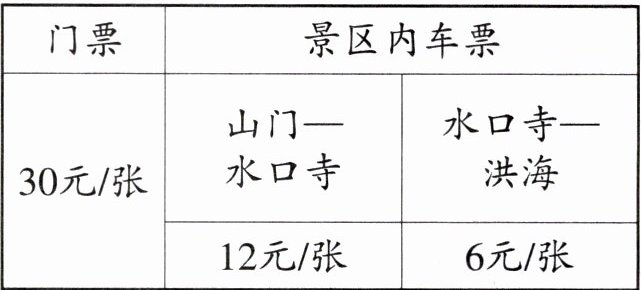 门票
景区内车票
30元/张
山门—
水口寺
水口寺—
洪海
12元/张
6元/张